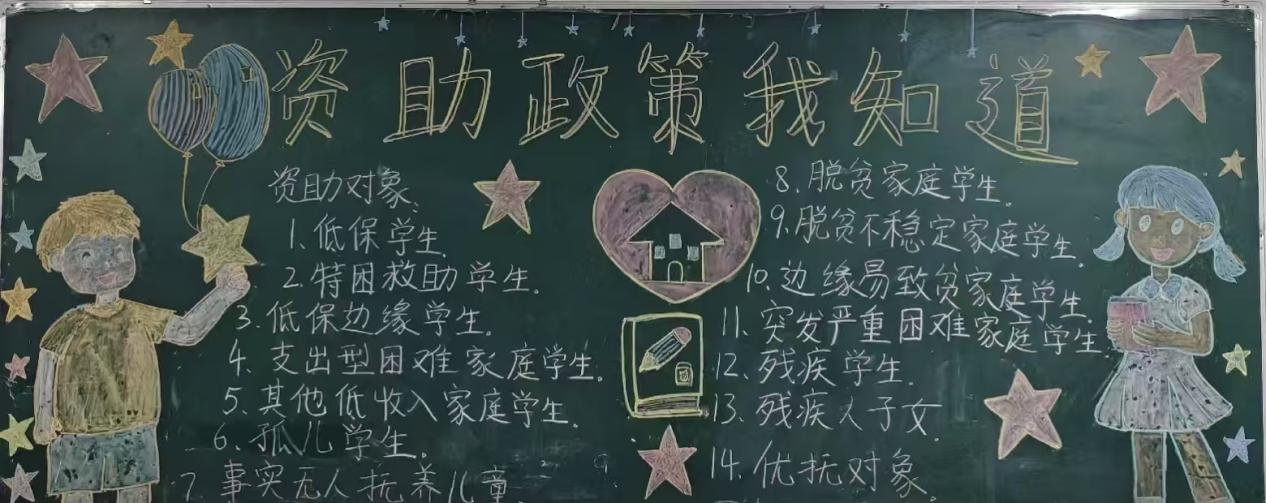 资助政策我知道
资助对象:
1. 低保学生.
2. 特困救助学生.
3. 低保边缘学生.
4. 支出型困难家庭学生.
5. 其他低收入家庭学生.
6. 孤儿学生.
7. 事实无人抚养儿童.
8. 脱贫家庭学生.
9. 脱贫不稳定家庭学生.
10. 边缘易致贫家庭学生.
11. 突发严重困难家庭学生.
12. 残疾学生.
13. 残疾人子女.
14. 优抚对象.